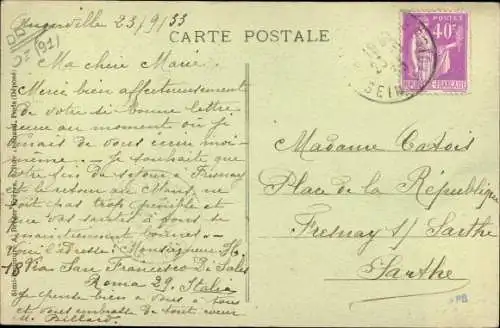 Angerville 23/9/33
CARTE POSTALE
POSTES
40c
Ma chère Marie
Merci bien affectueusement
de votre si bonne lettre
reçue au moment où je
venais de vous écrire moi-
même. - Je souhaite que
votre fin de séjour à Fresnay
et le retour au Mans, ne
soit pas trop pénible et
que vos santés à tous se
maintiennent bonnes -
Voici l'adresse: Monseigneur H.
18 Via San Francesco Di Sales
Roma 29. Italia
Je pense bien à vous à tous
et vous embrasse de tout cœur
M. Billard
Madame Catois
Place de la République
Fresnay s/ Sarthe
Sarthe